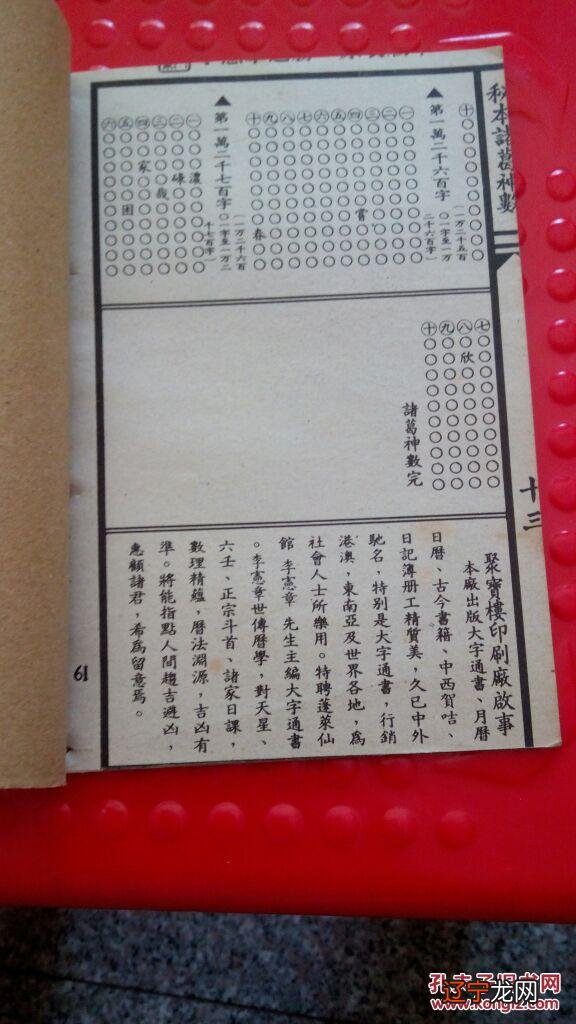 秘本諸葛神數
十三
㊉○○○○○○○○○
（一万二十五百
▲第一萬二千六百字
〇一字至一万
二千六百字）
㊀○○○○○○○○○
㊁○○○○○○○○○
㊂○○○○○○○○○
㊃○○○○○嘗○○○
㊄○○○○○○○○○
㊅○○○○○○○○○
㊆○○○○○○○○○
㊇○○○○○○○○○
㊈○○○○○○○○○
㊉○○○○○○春○○
（一万二千六百
▲第一萬二千七百字
〇一字至一万二
千七百字）
㊀○○○濃○○○○○
㊁○○碌○○○○○○
㊂○○○哉○○○○○
㊃○○家○○○○○○
㊄○○○○困○○○○
㊅○○○○○○○○○
㊆○○○○○○○○○
㊇○欣○○○○○○○
㊈○○○○○○○○○
㊉○○○○○○○○○
諸葛神數完
聚寶樓印刷廠啟事
本廠出版大字通書、月曆
日曆、古今書籍、中西賀咭、
日記簿册工精質美，久已中外
馳名，特别是大字通書，行銷
港澳，東南亞及世界各地，爲
社會人士所樂用。特聘蓬萊仙
館 李憲章 先生主編大字通書
。李憲章世傳曆學，對天星、
六壬、正宗斗首、諸家日課，
數理精蘊，曆法淵源，吉凶有
準。將能指點人間趨吉避凶，
惠顧諸君，希爲留意焉。
61
孔夫子旧书网
辽宁龙网